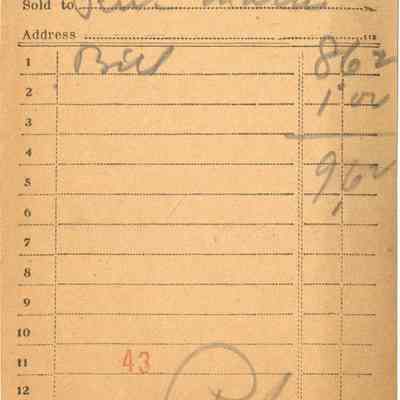 Sold to
Address
1 Bill 8 62
2 1 00
3
4
5 9,62
6
7
8
9
10
11 43
12